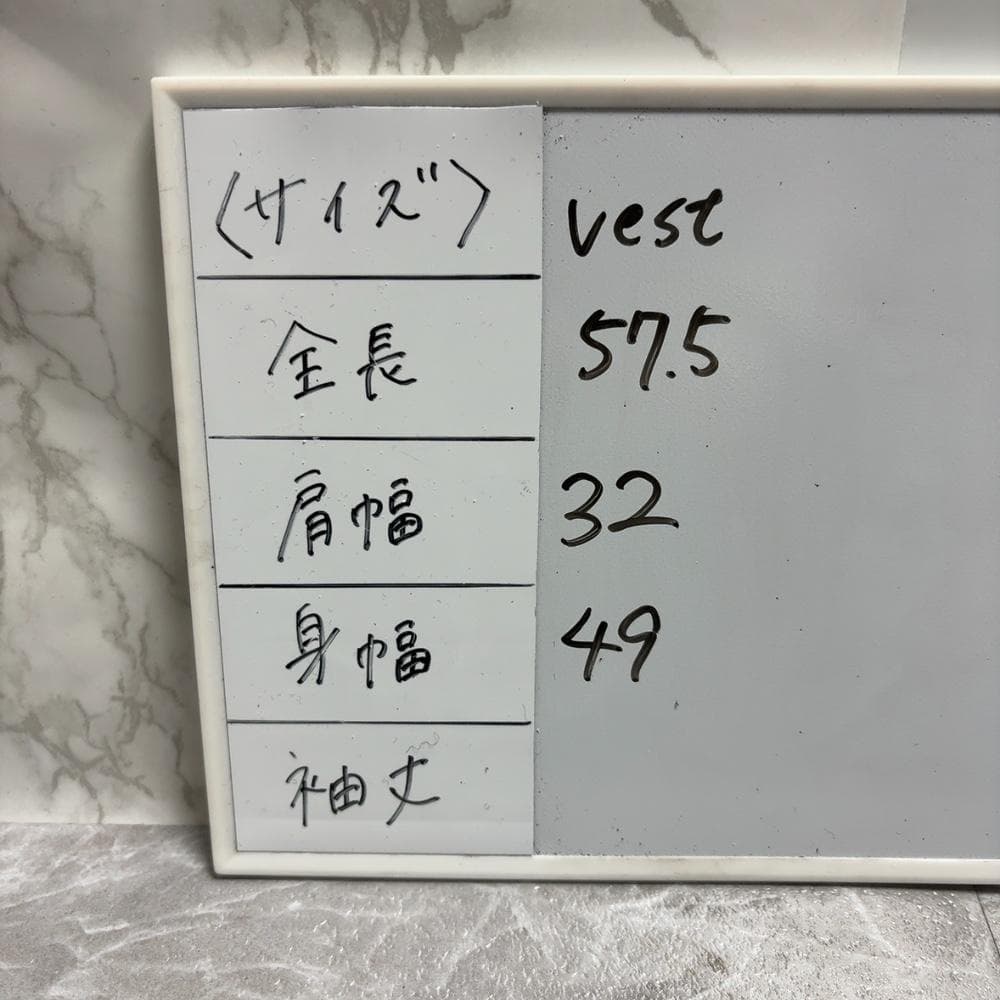 〈サイズ〉 vest
全長 57.5
肩幅 32
身幅 49
袖丈